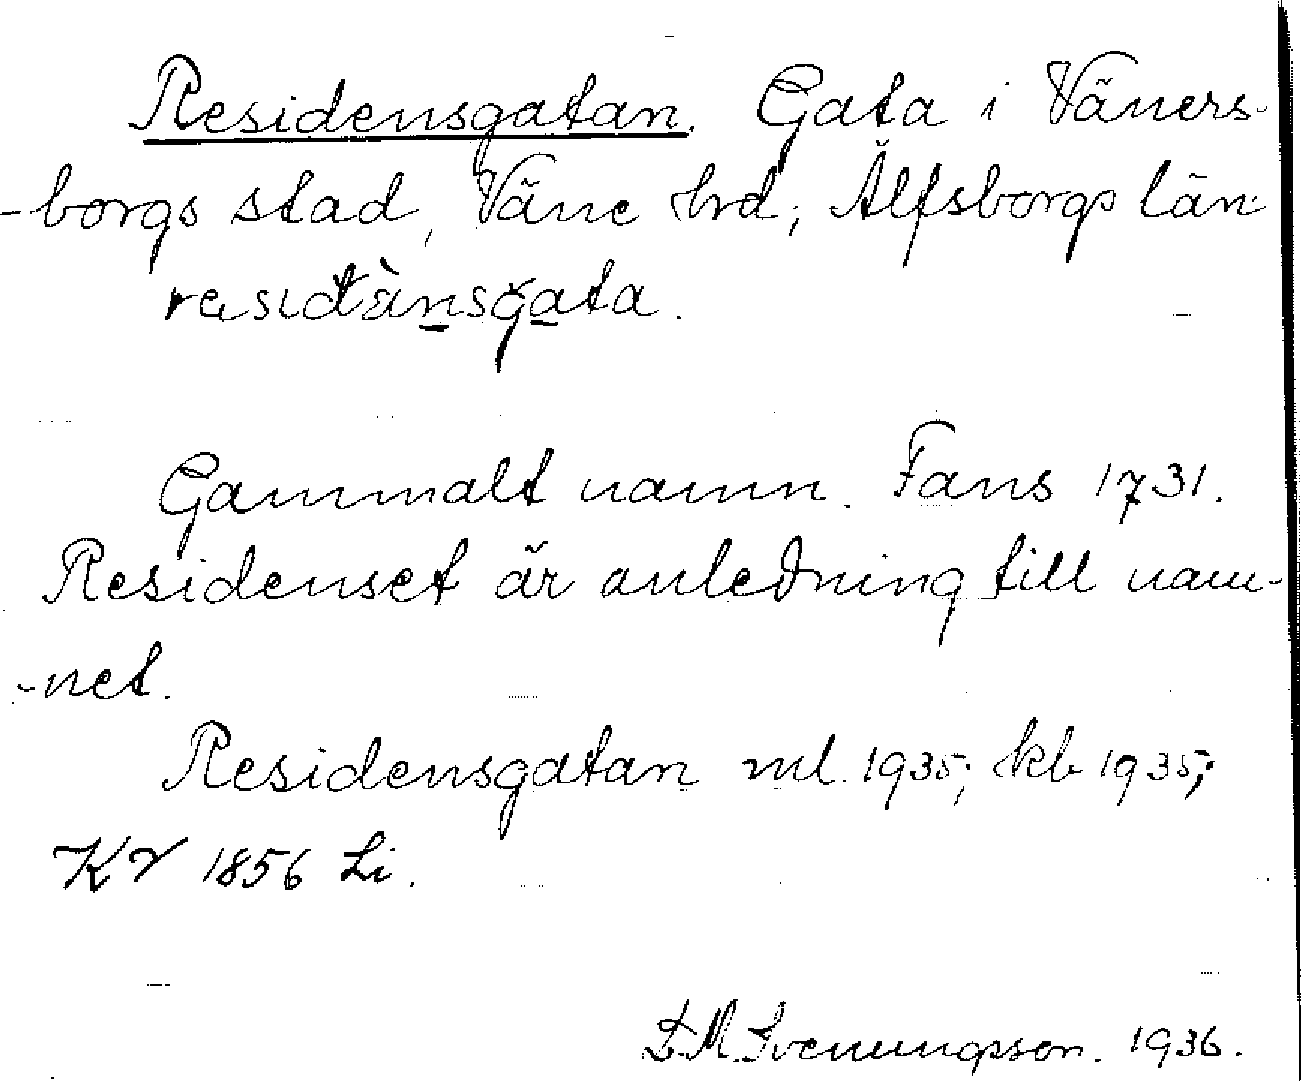 Residensgatan. Gata i Väners-
-borgs stad, Väne hrd, Älfsborgs län.
residä̀nsgata.
Gammalt namn. Fans 1731.
Residenset är anledning till nam-
-net.
Residensgatan ml. 1935; kb 1935;
KV 1856 Li.
D.M. Svenungsson. 1936.